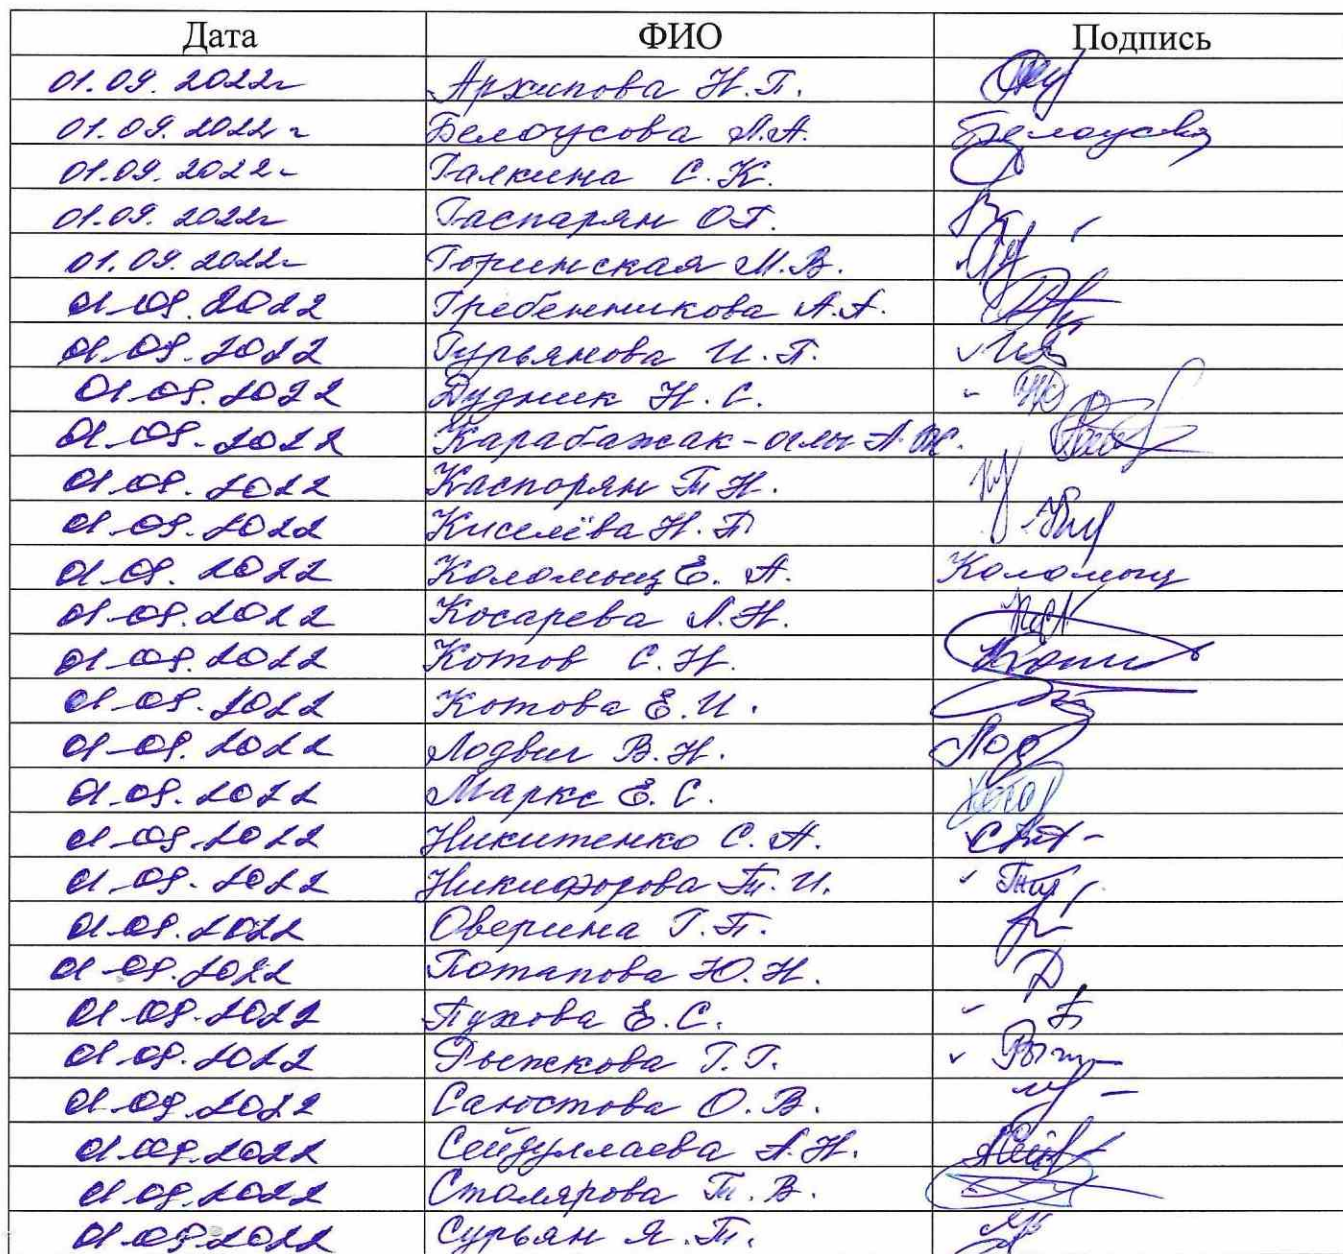 Дата ФИО Подпись
01.09.2022г Архипова Н.П.
01.09.2022г Белоусова Л.А. Белоусова
01.09.2022г Галкина С.К.
01.09.2022г Гаспарян О.Г.
01.09.2022г Горинская М.В.
01.09.2022 Гребенникова А.А.
01.09.2022 Гурьянова И.П.
01.09.2022 Дудник Н.С.
01.09.2022 Карабажак-оглы А.Ж.
01.09.2022 Каспорян Т.Н.
01.09.2022 Киселёва Н.П.
01.09.2022 Коломыц Е.А. Коломыц
01.09.2022 Косарева Л.Н.
01.09.2022 Котов С.Н.
01.09.2022 Котова Е.И.
01.09.2022 Лодвиг В.Н.
01.09.2022 Маркс Е.С.
01.09.2022 Никитенко С.А.
01.09.2022 Никифорова Т.И.
01.09.2022 Оверина Г.П.
01.09.2022 Потапова Ю.Н.
01.09.2022 Пухова Е.С.
01.09.2022 Рыжкова Г.Г.
01.09.2022 Саюстова О.В.
01.09.2022 Сейдуллаева А.Н.
01.09.2022 Столярова Т.В.
01.09.2022 Сурьян Я.Т.